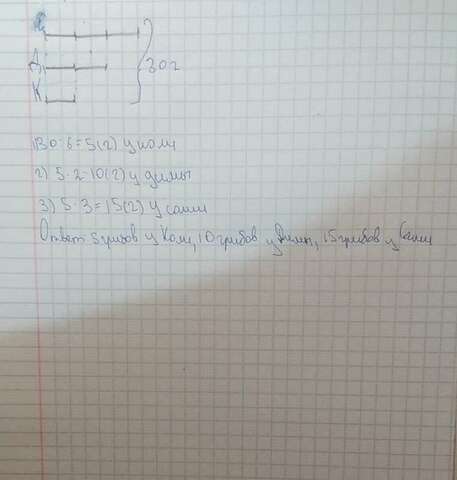 С
Д
К
30 г
1) 30:6=5(г) у коли
2) 5·2=10(г) у димы
3) 5·3=15(г) у саши
Ответ 5 грибов у Коли, 10 грибов у Димы, 15 грибов у Саши